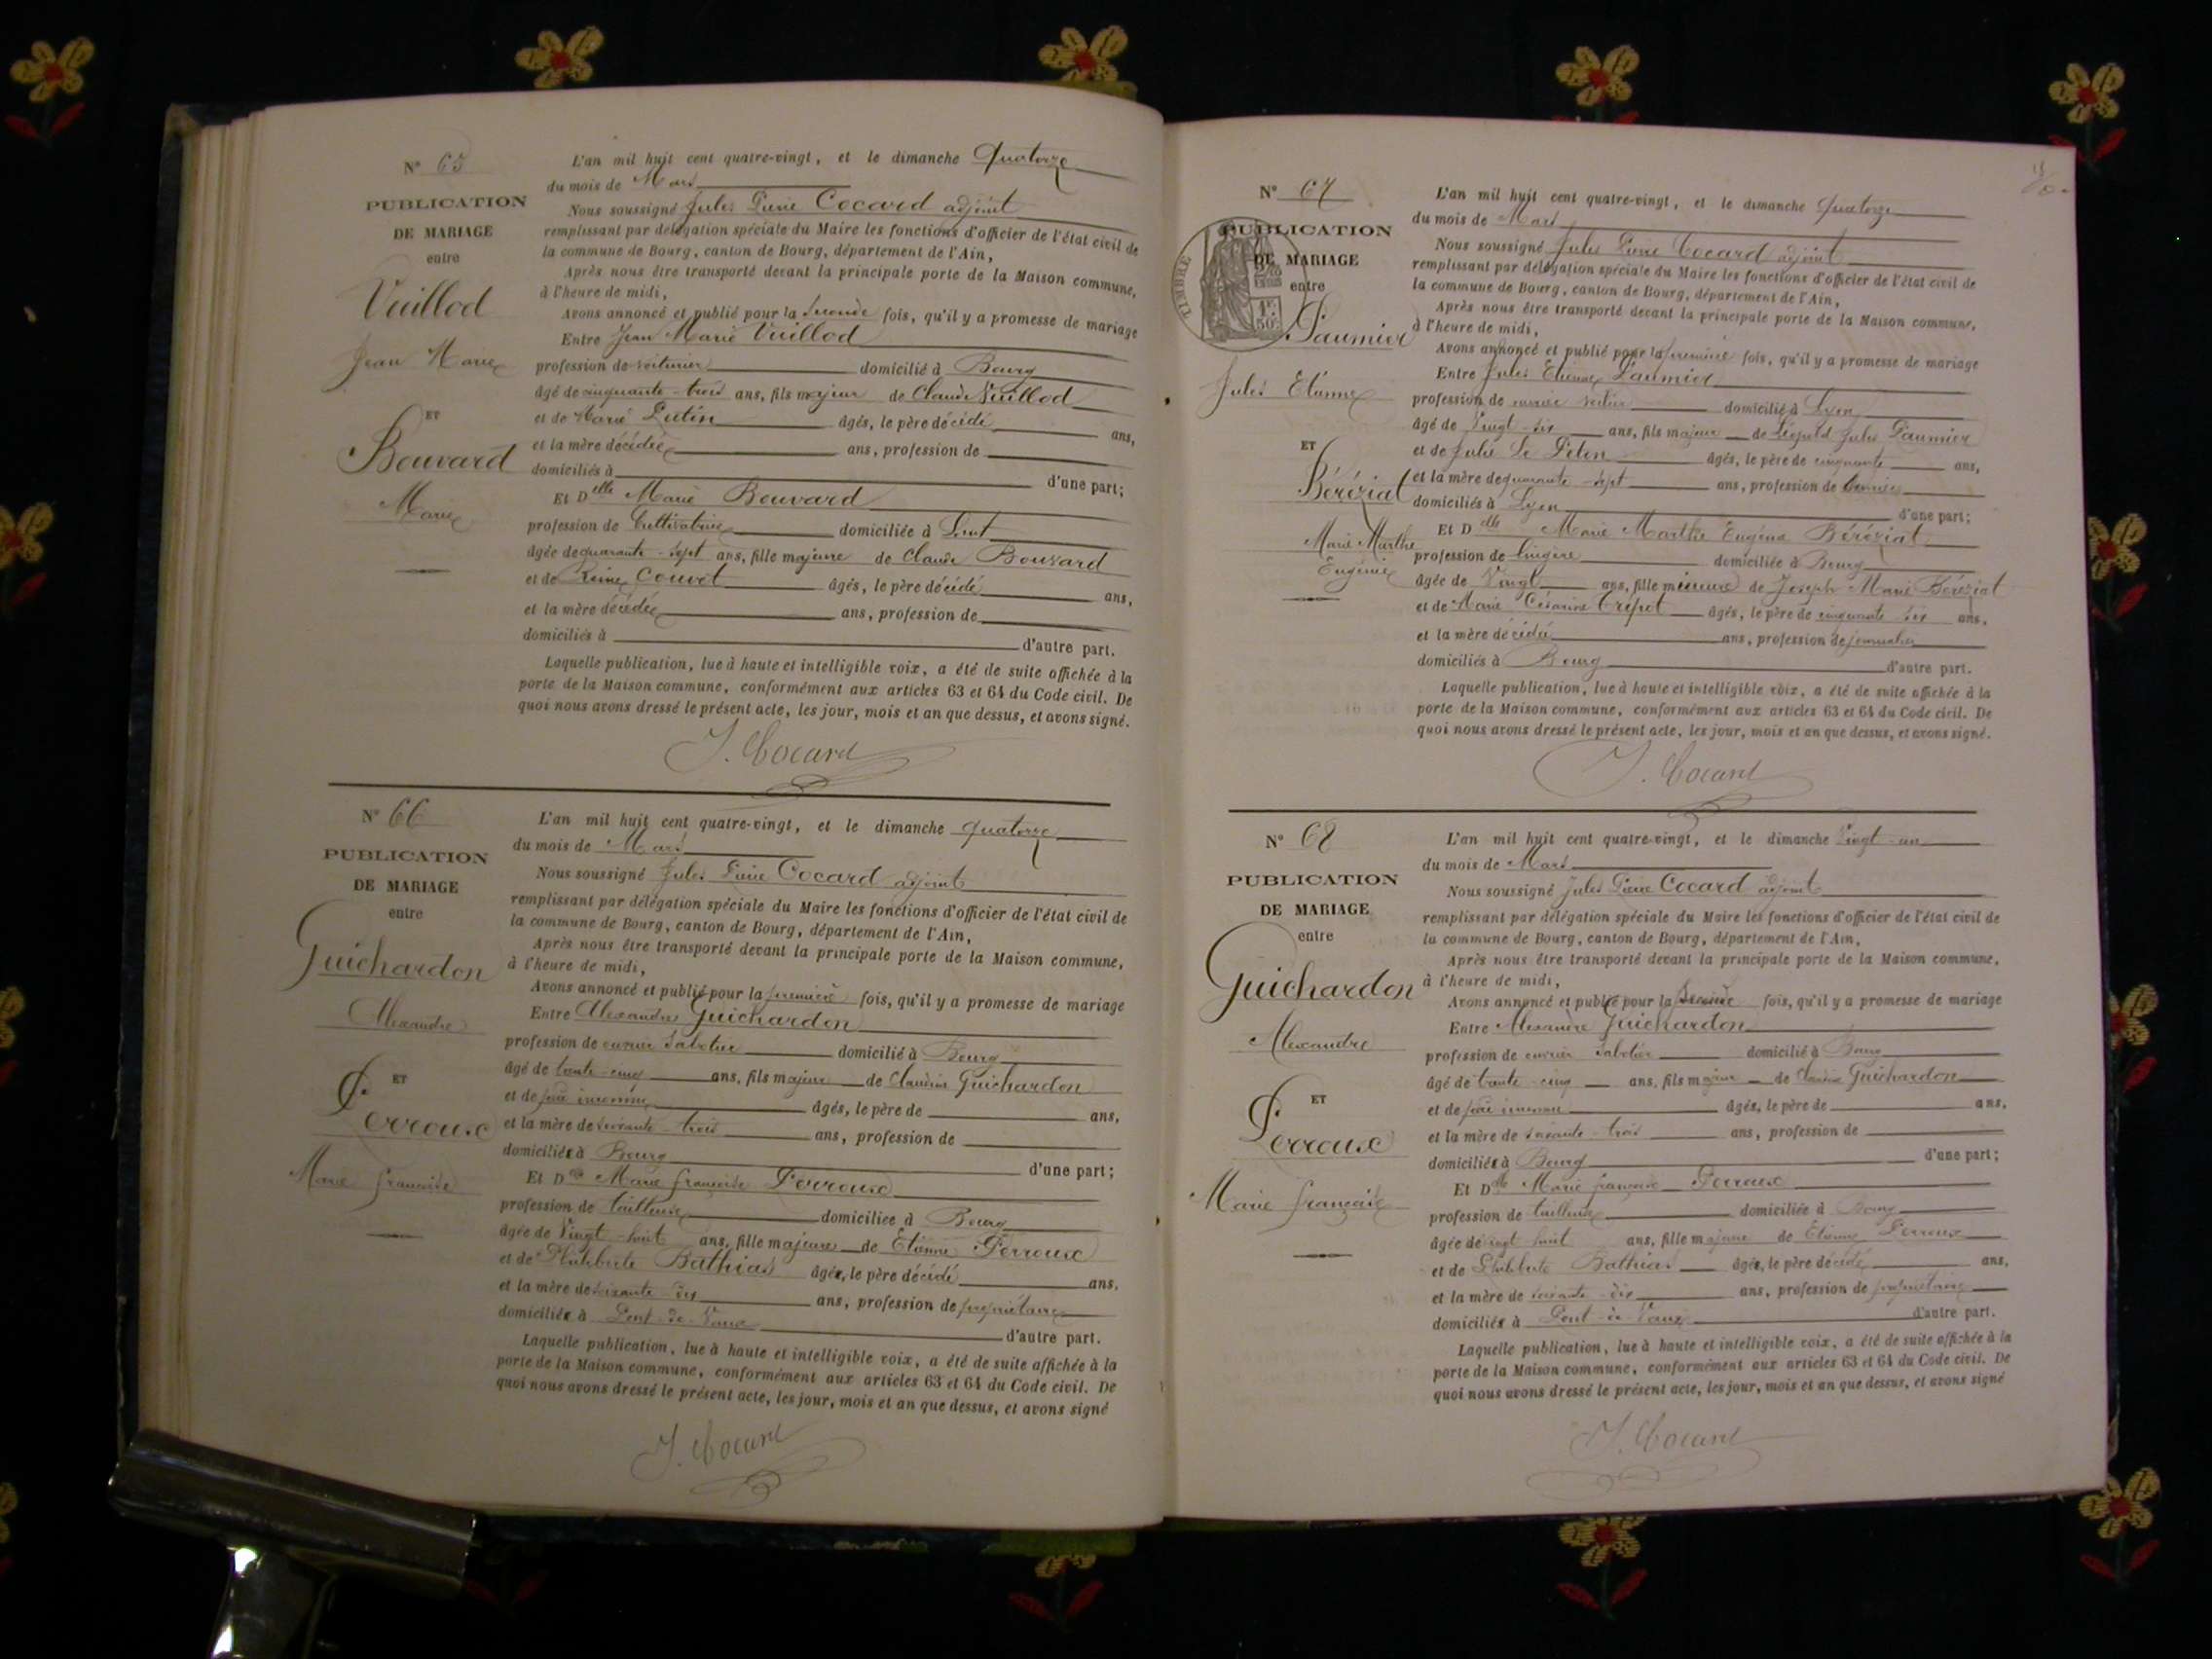 N° 65
PUBLICATION
DE MARIAGE
entre
Vuillod
Jean Marie
ET
Bouvard
Marie
L'an mil huit cent quatre-vingt, et le dimanche Quatorze
du mois de Mars
Nous soussigné Jules Pierre Cocard adjoint
remplissant par délégation spéciale du Maire les fonctions d'officier de l'état civil de
la commune de Bourg, canton de Bourg, département de l'Ain,
Après nous être transporté devant la principale porte de la Maison commune,
à l'heure de midi,
Avons annoncé et publié pour la seconde fois, qu'il y a promesse de mariage
Entre Jean Marie Vuillod
profession de voiturier domicilié à Bourg
âgé de cinquante-trois ans, fils majeur de Claude Vuillod
et de Marie Putin âgés, le père décédé ans,
et la mère décédée ans, profession de
domiciliés à d'une part;
Et Delle Marie Bouvard
profession de Cultivatrice domiciliée à
âgée de quarante-sept ans, fille majeure de Claude Bouvard
et de Reine Couvot âgés, le père décédé ans,
et la mère décédée ans, profession de
domiciliés à d'autre part.
Laquelle publication, lue à haute et intelligible voix, a été de suite affichée à la
porte de la Maison commune, conformément aux articles 63 et 64 du Code civil. De
quoi nous avons dressé le présent acte, les jour, mois et an que dessus, et avons signé.
J. Cocard
N° 66
PUBLICATION
DE MARIAGE
entre
Guichardon
Alexandre
ET
Perroux
Marie françoise
L'an mil huit cent quatre-vingt, et le dimanche quatorze
du mois de Mars
Nous soussigné Jules Pierre Cocard adjoint
remplissant par délégation spéciale du Maire les fonctions d'officier de l'état civil de
la commune de Bourg, canton de Bourg, département de l'Ain,
Après nous être transporté devant la principale porte de la Maison commune,
à l'heure de midi,
Avons annoncé et publié pour la première fois, qu'il y a promesse de mariage
Entre Alexandre Guichardon
profession de ouvrier sabotier domicilié à Bourg
âgé de trente-cinq ans, fils majeur de Claudine Guichardon
et de père inconnu âgés, le père de ans,
et la mère de soixante-trois ans, profession de
domiciliés à Bourg d'une part;
Et Dlle Marie françoise Perroux
profession de tailleuse domiciliée à Bourg
âgée de vingt-huit ans, fille majeure de Etienne Perroux
et de Philiberte Bathias âgés, le père décédé ans,
et la mère de soixante-dix ans, profession de propriétaire
domiciliés à Pont-de-Vaux d'autre part.
Laquelle publication, lue à haute et intelligible voix, a été de suite affichée à la
porte de la Maison commune, conformément aux articles 63 et 64 du Code civil. De
quoi nous avons dressé le présent acte, les jour, mois et an que dessus, et avons signé
J. Cocard
N° 67
TIMBRE
1F.
50c
PUBLICATION
DE MARIAGE
entre
Paumier
Jules Etienne
ET
Béréziat
Marie Marthe
Eugénie
L'an mil huit cent quatre-vingt, et le dimanche quatorze
du mois de Mars
Nous soussigné Jules Pierre Cocard adjoint
remplissant par délégation spéciale du Maire les fonctions d'officier de l'état civil de
la commune de Bourg, canton de Bourg, département de l'Ain,
Après nous être transporté devant la principale porte de la Maison commune,
à l'heure de midi,
Avons annoncé et publié pour la première fois, qu'il y a promesse de mariage
Entre Jules Etienne Paumier
profession de ouvrier domicilié à Lyon
âgé de Vingt-six ans, fils majeur de Léopold Jules Paumier
et de Julie Le Piton âgés, le père de cinquante ans,
et la mère de quarante-sept ans, profession de
domiciliés à Lyon d'une part;
Et Dlle Marie Marthe Eugénie Béréziat
profession de lingère domiciliée à Bourg
âgée de Vingt ans, fille mineure de Joseph Marie Béréziat
et de Marie Césarine Trépot âgés, le père de cinquante six ans,
et la mère décédée ans, profession de journalier
domiciliés à Bourg d'autre part.
Laquelle publication, lue à haute et intelligible voix, a été de suite affichée à la
porte de la Maison commune, conformément aux articles 63 et 64 du Code civil. De
quoi nous avons dressé le présent acte, les jour, mois et an que dessus, et avons signé.
J. Cocard
N° 68
PUBLICATION
DE MARIAGE
entre
Guichardon
Alexandre
ET
Perroux
Marie françoise
L'an mil huit cent quatre-vingt, et le dimanche Vingt-un
du mois de Mars
Nous soussigné Jules Pierre Cocard adjoint
remplissant par délégation spéciale du Maire les fonctions d'officier de l'état civil de
la commune de Bourg, canton de Bourg, département de l'Ain,
Après nous être transporté devant la principale porte de la Maison commune,
à l'heure de midi,
Avons annoncé et publié pour la seconde fois, qu'il y a promesse de mariage
Entre Alexandre Guichardon
profession de ouvrier sabotier domicilié à Bourg
âgé de trente-cinq ans, fils majeur de Claudine Guichardon
et de père inconnu âgés, le père de ans,
et la mère de soixante-trois ans, profession de
domiciliés à Bourg d'une part;
Et Dlle Marie françoise Perroux
profession de tailleuse domiciliée à Bourg
âgée de vingt huit ans, fille majeure de Etienne Perroux
et de Philiberte Bathias âgés, le père décédé ans,
et la mère de soixante-dix ans, profession de propriétaire
domiciliés à Pont-de-Vaux d'autre part.
Laquelle publication, lue à haute et intelligible voix, a été de suite affichée à la
porte de la Maison commune, conformément aux articles 63 et 64 du Code civil. De
quoi nous avons dressé le présent acte, les jour, mois et an que dessus, et avons signé
J. Cocard